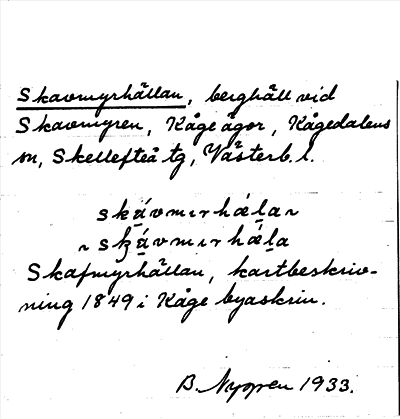 Skavmyrhällan, berghäll vid
Skavmyren, Kåge ägor, Kågedalens
sn, Skellefteå tg, Västerb. l.
skávmırhǽḷaɴ
~ skávmırhǽḷa
Skafmyrhällan, kartbeskriv-
ning 1849 i Kåge byaskrin.
B. Nygren 1933.